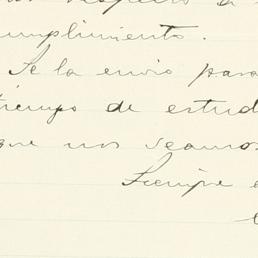 respecto a
cumplimiento.
Se la envio para
tiempo de estud
que nos veamos
Siempre